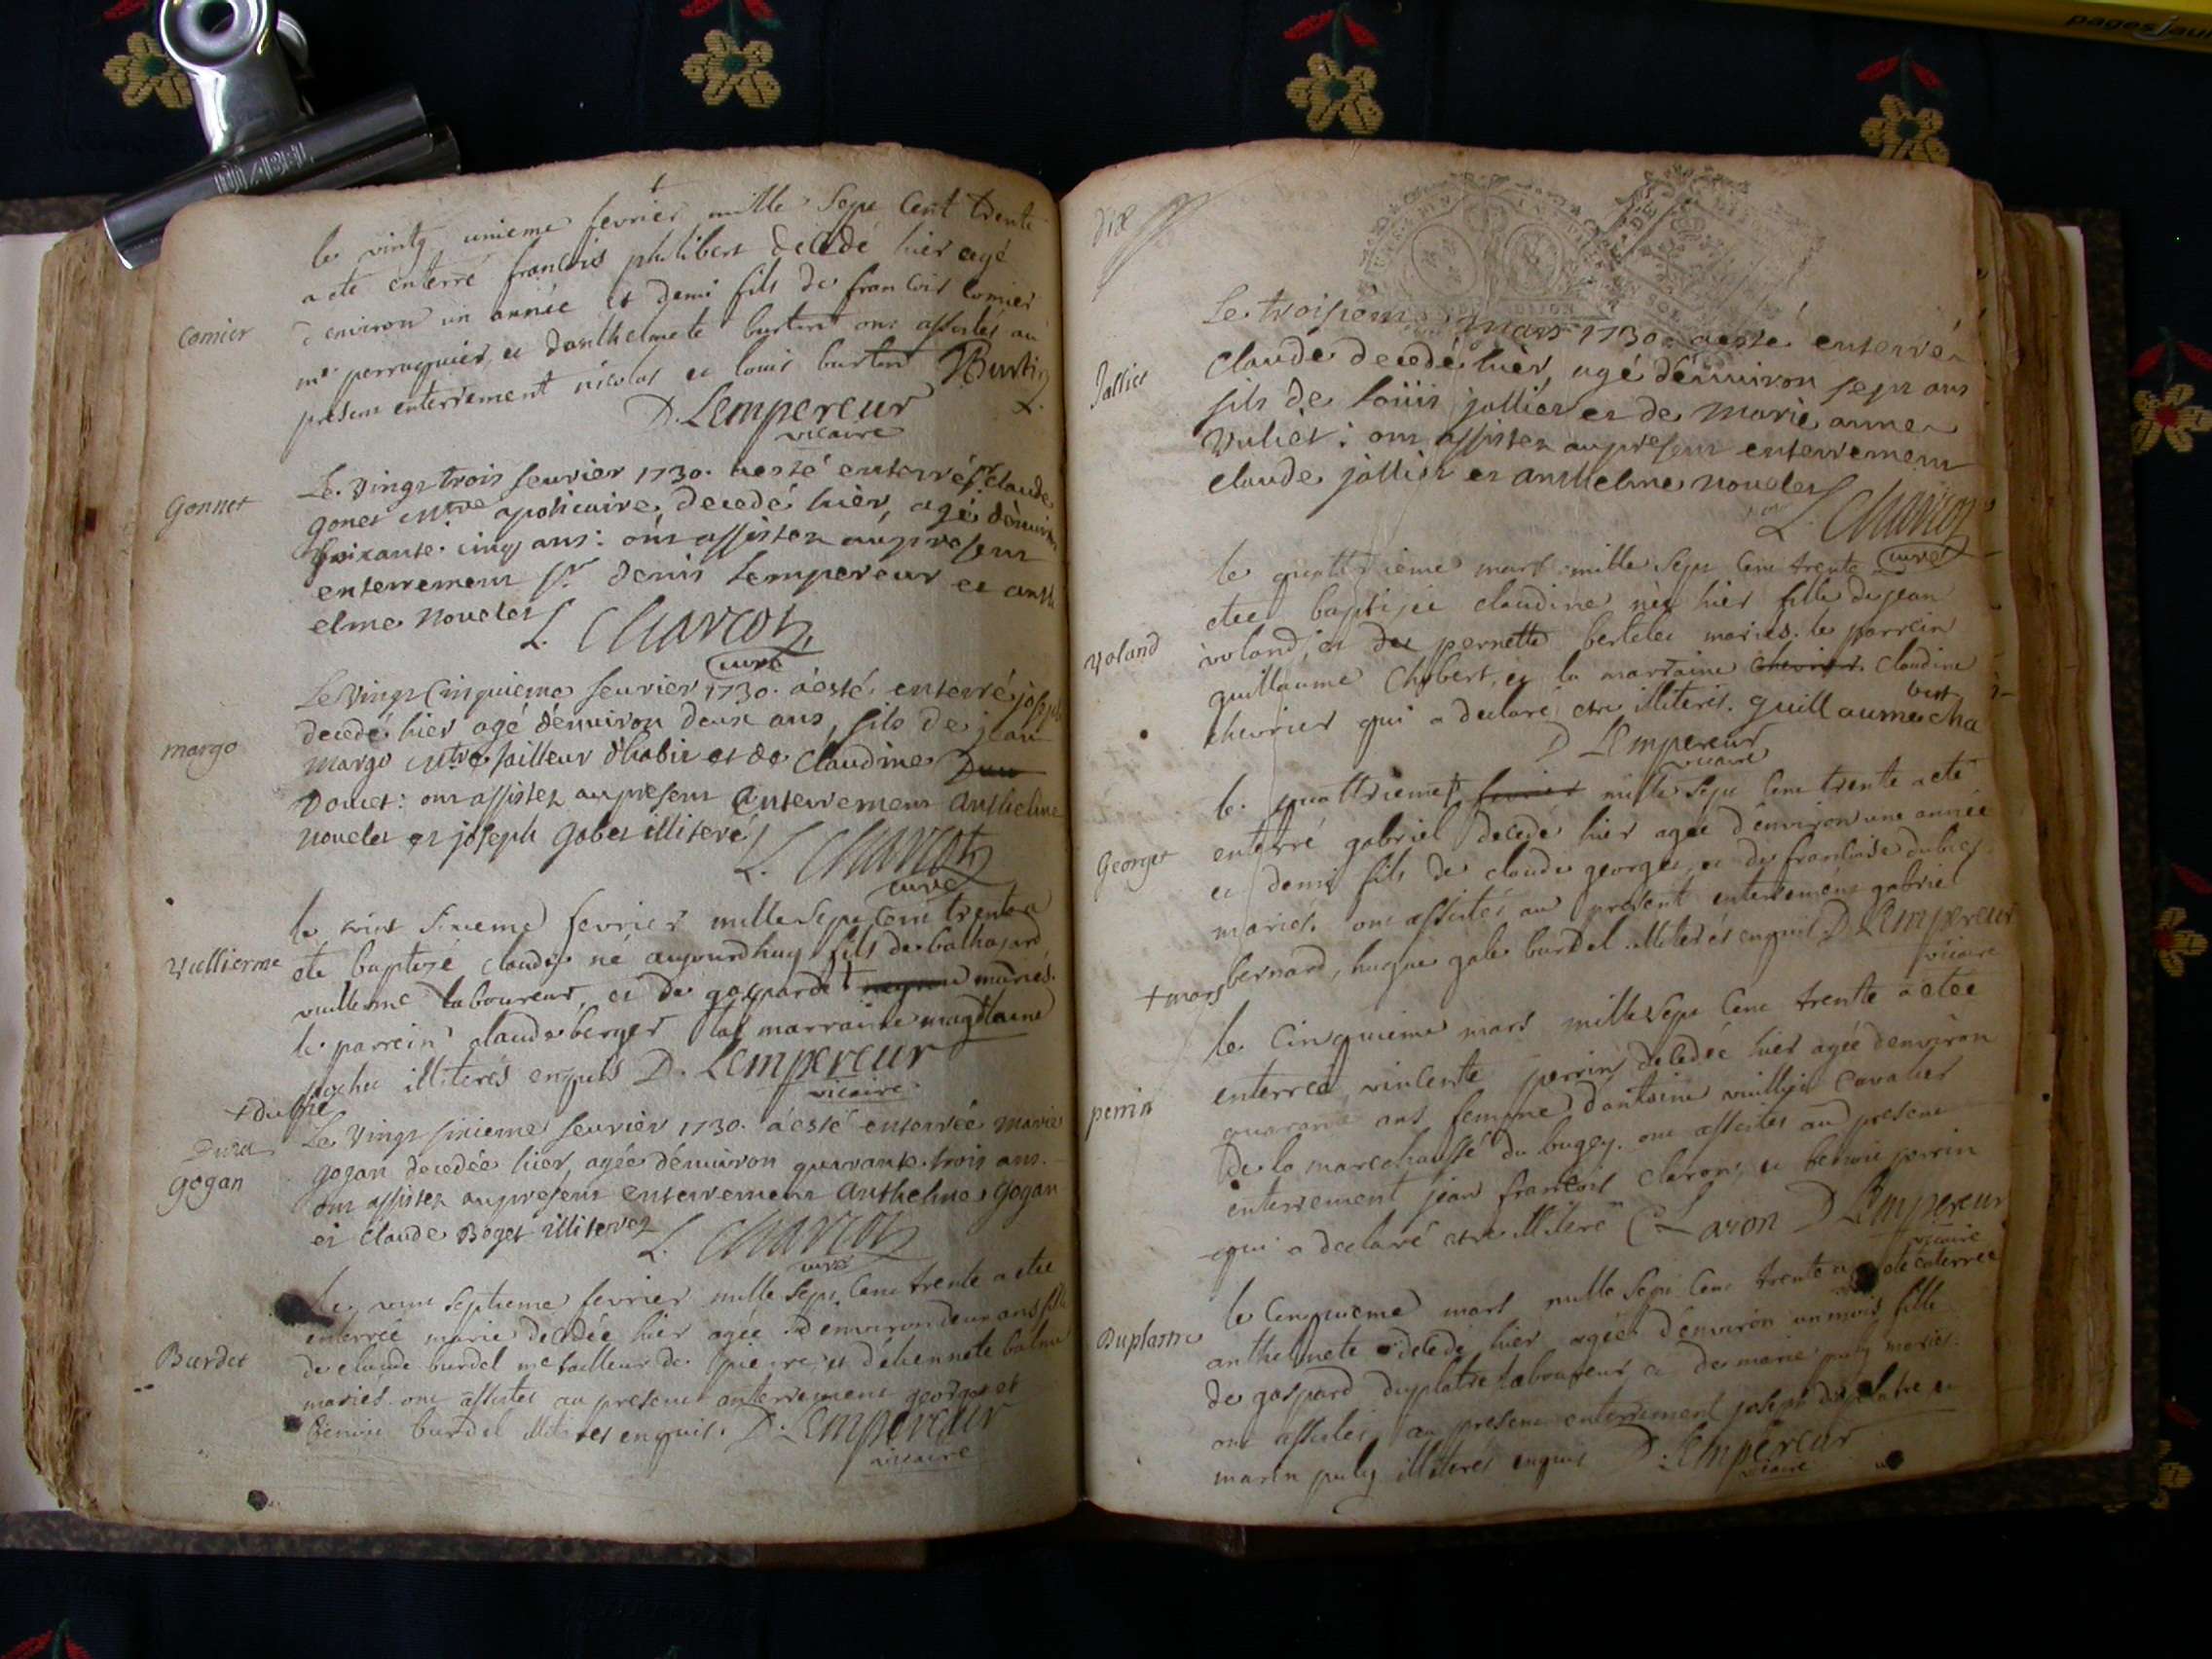 DIABEL
pagesjau
le vintg unieme fevrier mille Sept Cent trente
a ete enterré francois philibert decedé hier agé
d'environ un année et demi fils de francois Comier
Comier
me perruquier, et d'anthelmete burtin ont assistés au
present enterrement nicolas et louis burtin Burtin
D. Lempereur
vicaire
Le vingt trois feurier 1730. aesté enterré sr Claude
Gonnet
gonet mtre apoticaire, decedé hier, agé d'enuiron
soixante cinq ans: ont assistez aupresent
enterrement sr denis Lempereur et anth
elme nouelet L. Charcot
curé
Le Vingt Cinquieme feurier 1730. áesté enterré joseph
decedé hier agé d'enuiron deux ans, fils de jean
margo
margo mtre tailleur d'habit et de Claudine
Douet: ont assistez aupresent enterrement Anthelme
nouelet et joseph gobet illiteré L. Charcot
curé
le vint sixieme fevrier mille Sept Cent trente a
Vullierme
ete baptizé claude né aujourdhuy fils de balthazard
vuillerme laboureur, et de gasparde + mariés.
le parrein claude berger la marraine magdlaine
pochet illiterés enquis D. Lempereur
vicaire.
+ du
Le Vingt sixieme feurier 1730. áesté enterrée marie
gogan
gogan decedée hier, agée d'enuiron quarante trois ans.
ont assistez aupresent enterrement Anthelme gogan
et claude Boget illiterez L. Charcot
curé
le vint septieme fevrier mille Sept Cent trente a etee
enterrée marie decedée hier agée d'environ deux ans fille
Burdet
de claude burdel me tailleur de pierre, et d'etiennete balme
mariés. ont assistés au present enterrement george et
benoit burdel illiterés enquis. D. Lempereur
vicaire
dix
Le troisieme mars 1730. aesté enterré
Jallier
Claude decedé hier, agé d'enuiron sept ans
fils de Loüis jollier et de Marie anne
Vuliet: ont assistez aupresent enterrement
Claude jollier et anthelme nouelet
L. Charcot
curé
le quattrieme mars mille Sept Cent trente a
etee baptisée claudine née hier fille de jean
Voland
voland, et de pernette bertelet mariés. le parrein
guillaume Chabert, et la marraine chevrier Claudine
chevrier qui a declaré etre illiteré. guillaume cha
bert
D Lempereur
vicaire
le quattrieme + fevrier mille Sept Cent trente a eté
enterré gabriel decedé hier agée d'environ une année
George
et demi fils de claude george, et de francoise
mariés. ont assistés au present enterrement gabriel
+ mars bernard, hugue gale burdel illiterés enquis D Lempereur
vicaire
le Cinquieme mars mille Sept Cent trente a etee
enterrée vincente perrin decedée hier agée d'environ
perrin
quarante ans femme d'antoine cavalier
de la marechaussé du bugey. ont assistés au present
enterrement jean francois claron, et benoit perrin
qui a declaré etre illiteré Claron D Lempereur
vicaire
le Cinquieme mars mille Sept Cent trente a ete enterrée
Duplatre
anthelmete decedé hier agée d'environ un mois fille
de gaspard duplatre laboureur et de marie puly mariés.
ont assistés au present enterrement joseph duplatre et
marin puly illiterés enquis D. Lempereur
vicaire